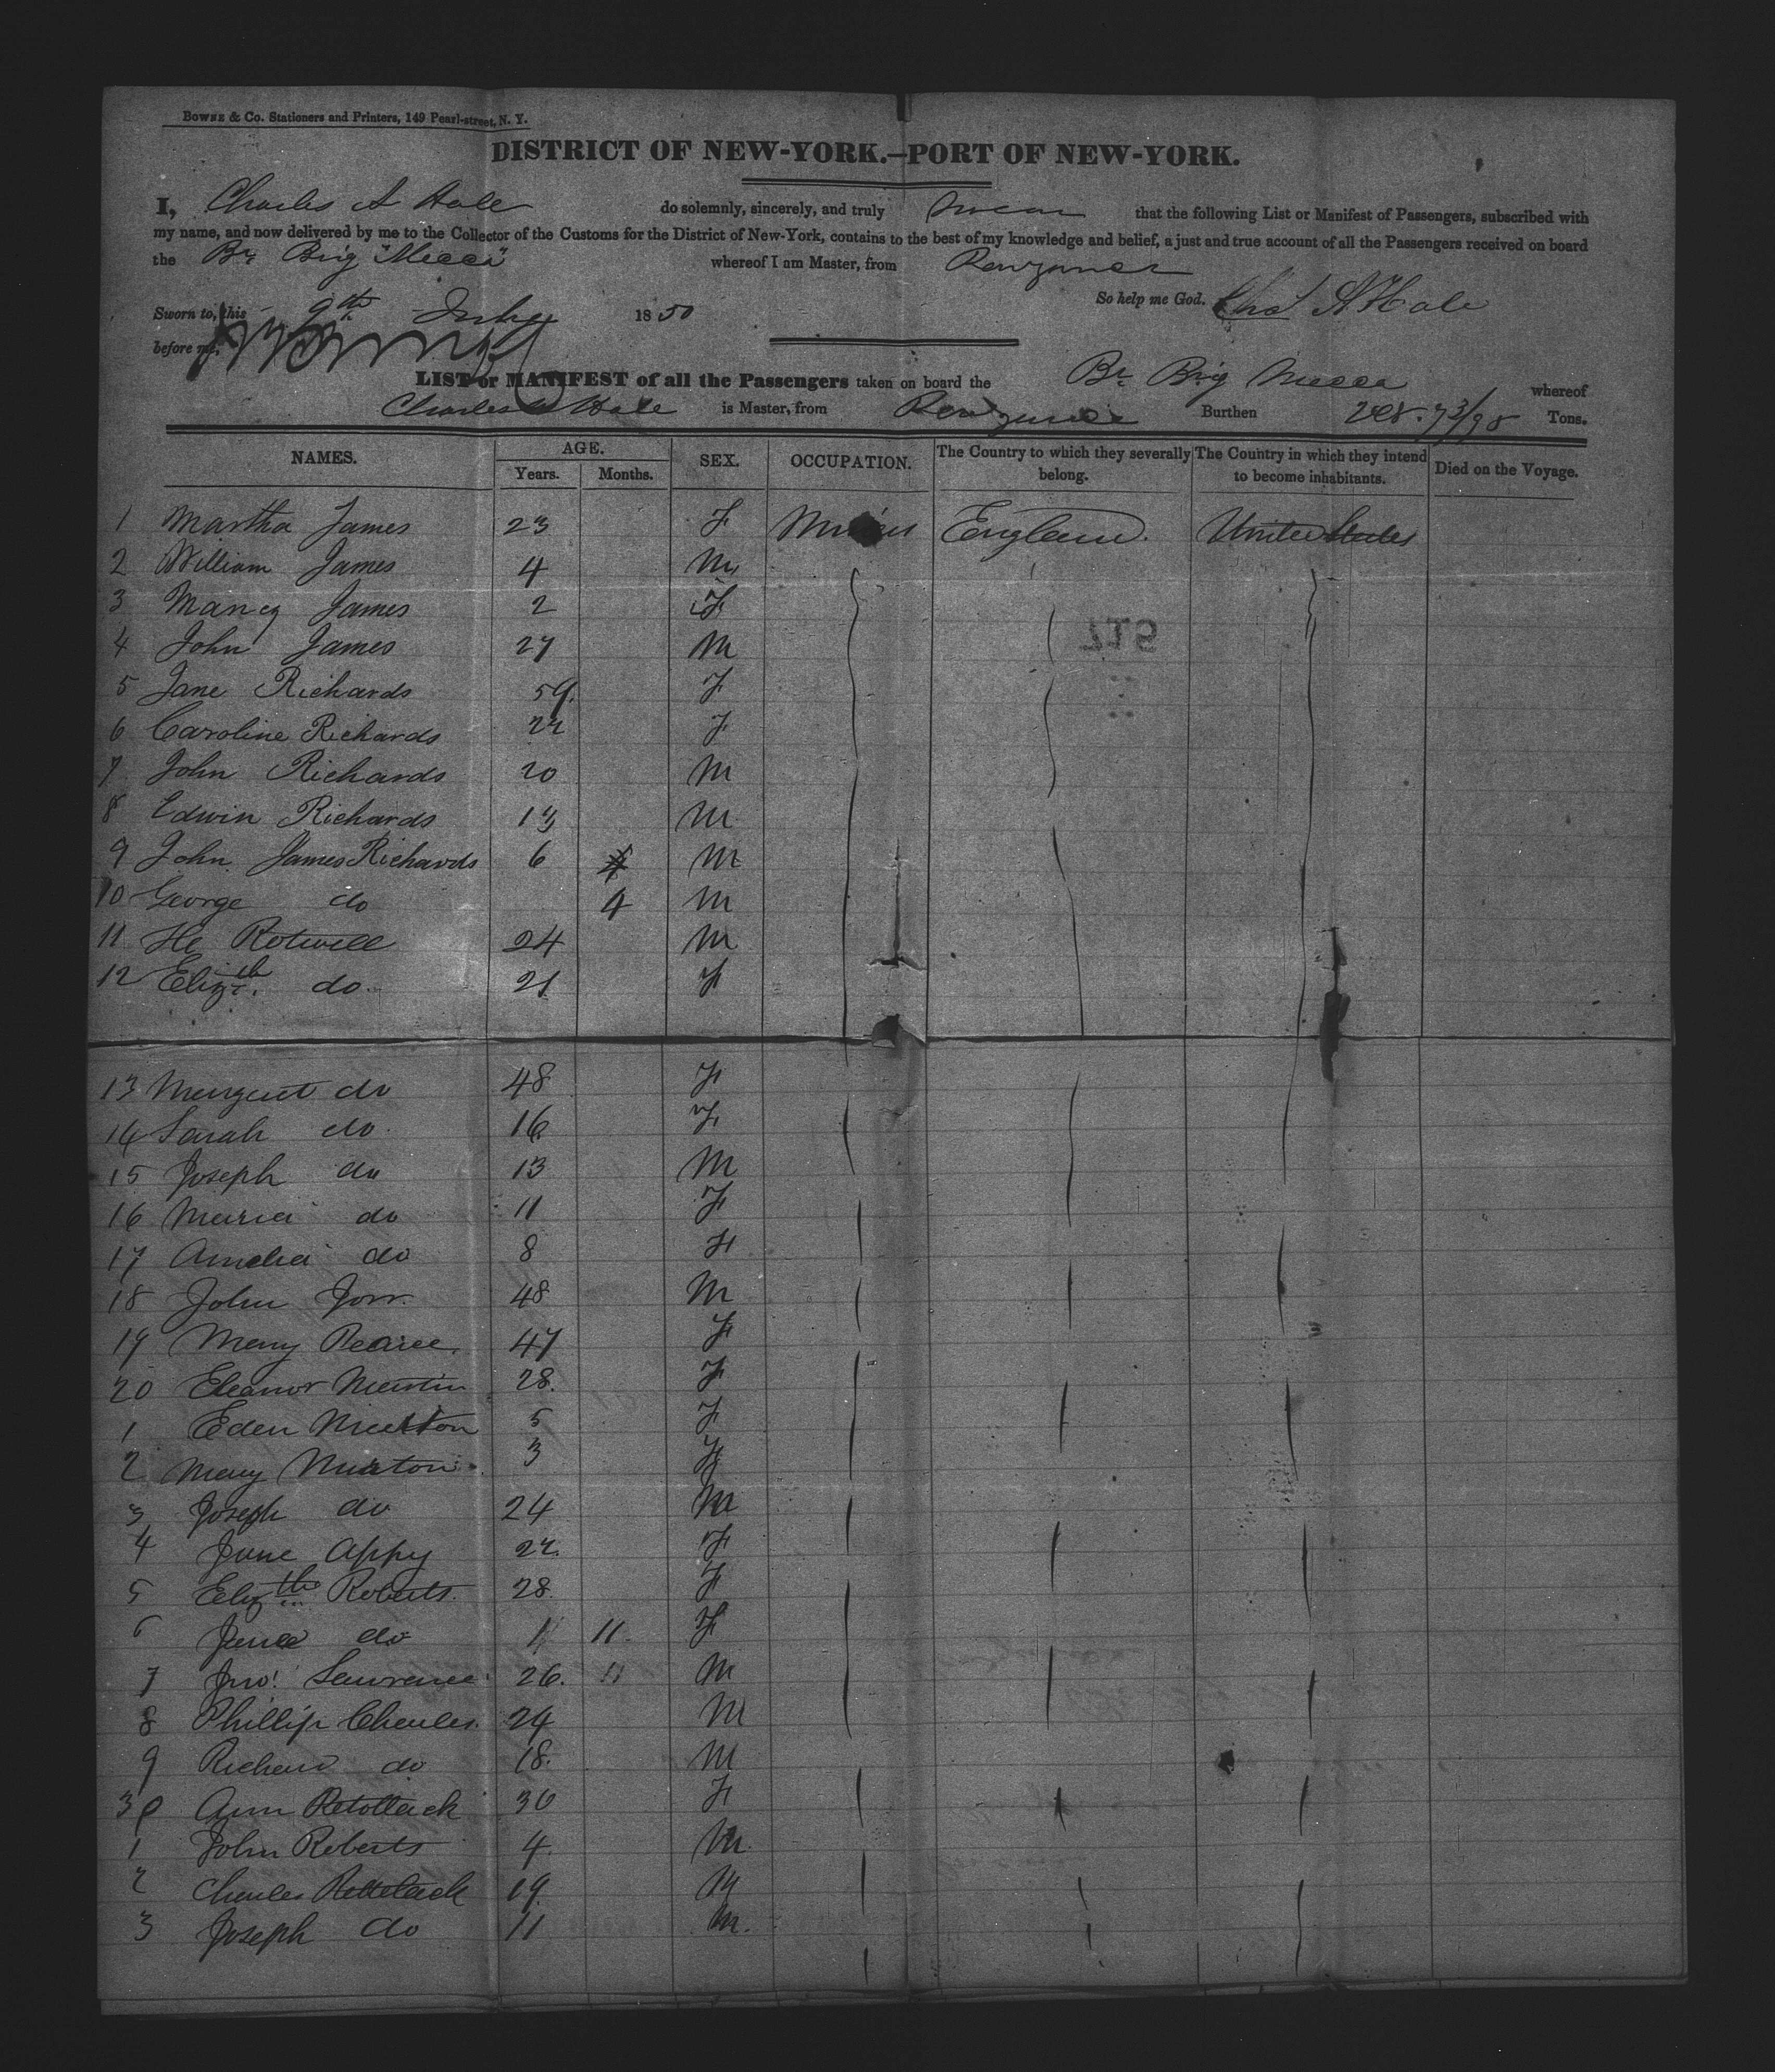 BOWNE & Co. Stationers and Printers, 149 Pearl-street, N. Y.
DISTRICT OF NEW-YORK.—PORT OF NEW-YORK.
I, Charles A Hale do solemnly, sincerely, and truly swear that the following List or Manifest of Passengers, subscribed with
my name, and now delivered by me to the Collector of the Customs for the District of New-York, contains to the best of my knowledge and belief, a just and true account of all the Passengers received on board
the Br Brig "Mecca" whereof I am Master, from Penzance
So help me God. Chas A Hale
Sworn to, this 9th July 1850
before me,
LIST or MANIFEST of all the Passengers taken on board the Br Brig Mecca whereof
Charles A Hale is Master, from Penzance Burthen Tons.
NAMES. AGE. Years. Months. SEX. OCCUPATION. The Country to which they severally belong. The Country in which they intend to become inhabitants. Died on the Voyage.
1 Martha James 23 F England. United States
2 William James 4 M
3 Nancy James 2 F
4 John James 27 M
5 Jane Richards 59. F
6 Caroline Richards 22 F
7 John Richards 20 M
8 Edwin Richards 13 M
9 John James Richards 6 M
10 George do 4 M
11 He Rotwell 24 M
12 Elizth. do. 21 F
13 Margaret do 48 F
14 Sarah do. 16 F
15 Joseph do 13 M
16 Maria do 11 F
17 Amelia do 8 F
18 John 48 M
19 Mary Pearce. 47 F
20 Eleanor Martin 28. F
1 Eden 5 F
2 Mary 3 F
3 Joseph do 24 M
4 Jane Appy 22. F
5 Elizth Roberts. 28. F
6 Jane do 1 11. F
7 Jno. Lawrence 26. 11 M
8 Phillip Charles. 24 M
9 Richard do 18. M
30 Ann 30 F
1 John Roberts 4. M.
2 Charles 19. M
3 Joseph do 11 M.